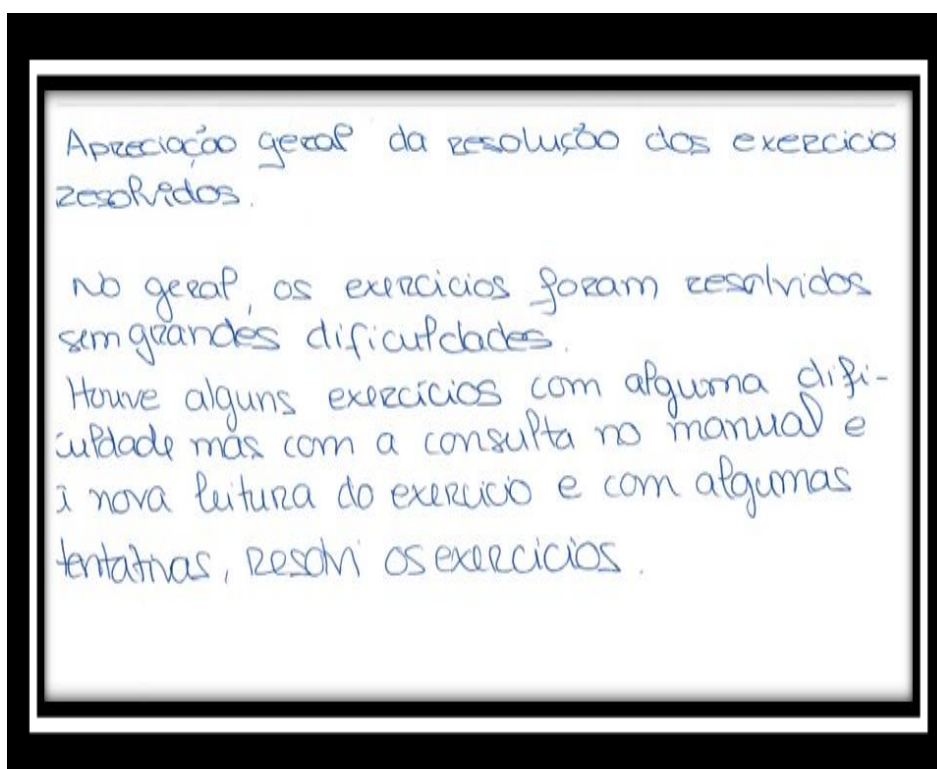 Apreciação geral da resolução dos exercicio
resolvidos.
No geral, os exercicios foram resolvidos
sem grandes dificuldades.
Houve alguns exercícios com alguma difi-
culdade mas com a consulta no manual e
i nova leitura do exercicio e com algumas
tentativas, resolvi os exercicios.